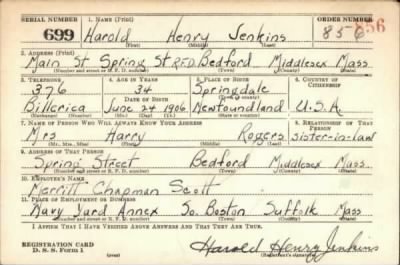 SERIAL NUMBER 1. NAME (Print) ORDER NUMBER
699 Harold Henry Jenkins 856 856
(First) (Middle) (Last)
2. ADDRESS (Print)
Main St Spring St RFD Bedford Middlesex Mass
(Number and street or R. F. D. number) (Town) (County) (State)
3. TELEPHONE 4. AGE IN YEARS 5. PLACE OF BIRTH 6. COUNTRY OF CITIZENSHIP
376 34 Springdale
DATE OF BIRTH (Town or county)
Billerica June 24 1906 Newfoundland U.S.A
(Exchange) (Number) (Mo.) (Day) (Yr.) (State or country)
7. NAME OF PERSON WHO WILL ALWAYS KNOW YOUR ADDRESS 8. RELATIONSHIP OF THAT PERSON
Mrs Harry Rogers sister-in-law
(Mr., Mrs., Miss) (First) (Middle) (Last)
9. ADDRESS OF THAT PERSON
Spring Street Bedford Middlesex Mass.
(Number and street or R. F. D. number) (Town) (County) (State)
10. EMPLOYER'S NAME
Merritt Chapman Scott
11. PLACE OF EMPLOYMENT OR BUSINESS
Navy Yard Annex So. Boston Suffolk Mass
(Number and street or R. F. D. number) (Town) (County) (State)
I AFFIRM THAT I HAVE VERIFIED ABOVE ANSWERS AND THAT THEY ARE TRUE.
REGISTRATION CARD
D. S. S. Form 1 (over) Harold Henry Jenkins
(Registrant's signature)